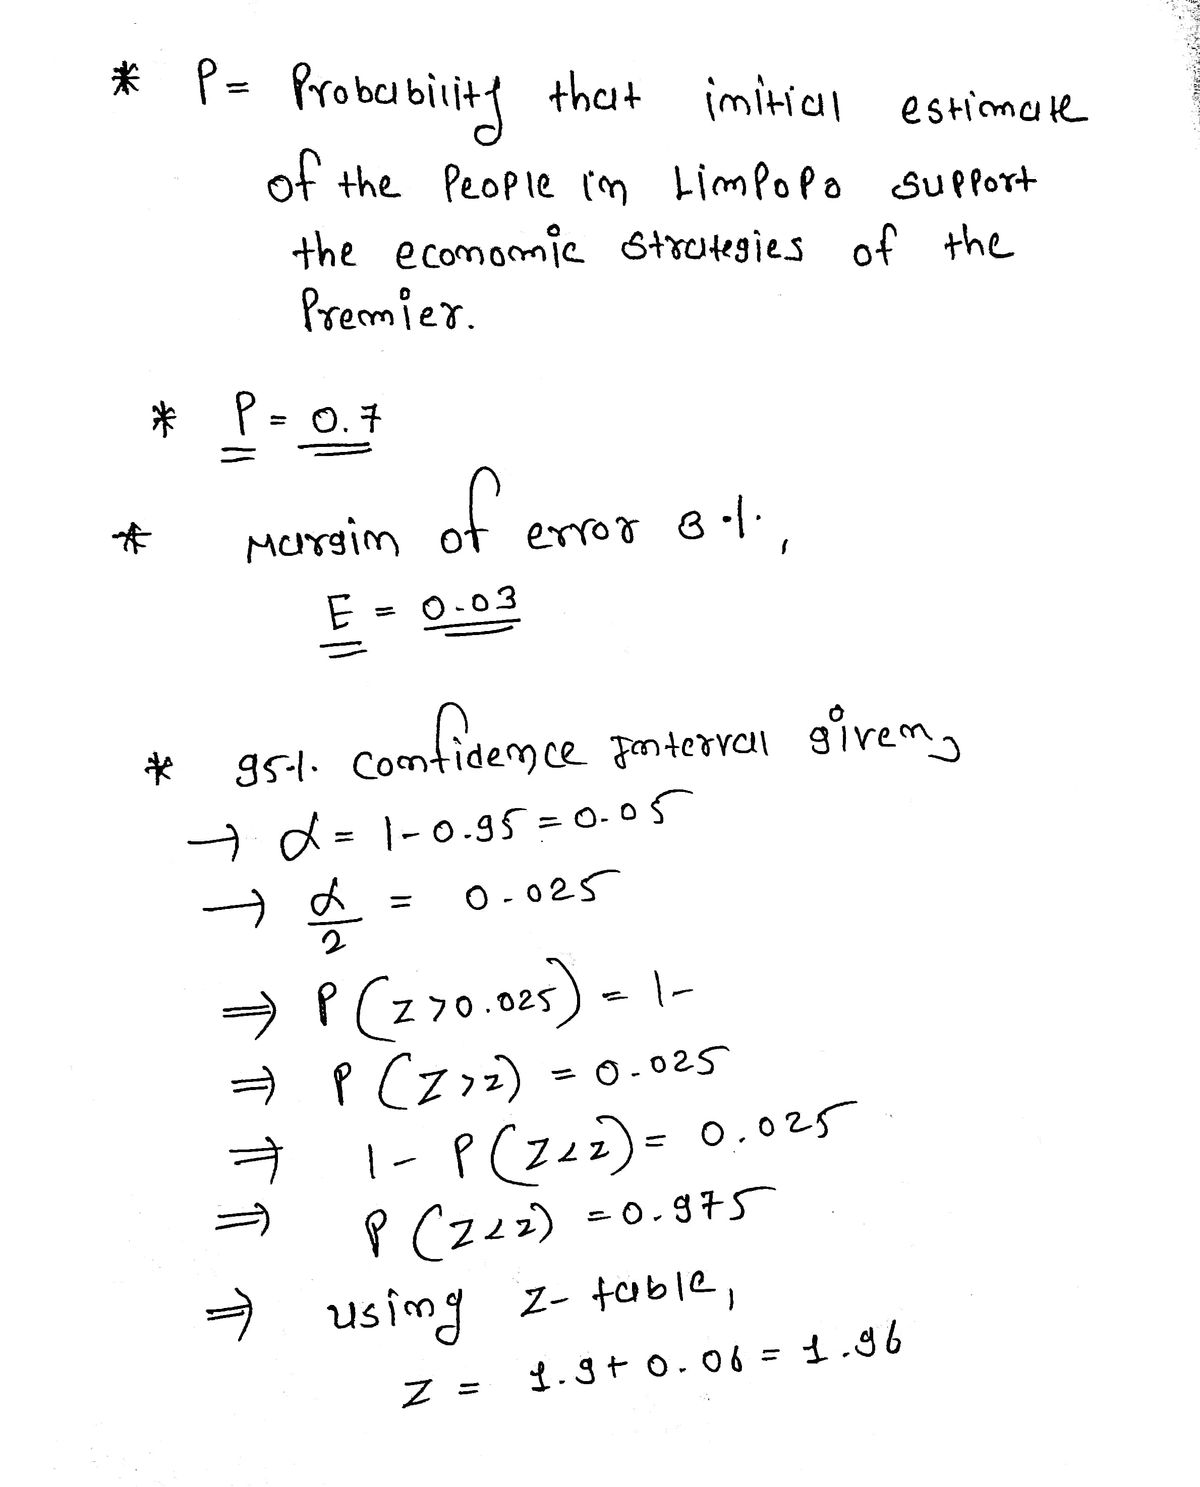 * P = Probability that initial estimate
of the People in Limpopo support
the economic strategies of the
Premier.
* P = 0.7
* Margin of error 3 %,
E = 0.03
* 95% Confidence Interval given,
→ α = 1 - 0.95 = 0.05
→ α/2 = 0.025
⇒ P(Z > 0.025) = 1 -
⇒ P(Z > z) = 0.025
⇒ 1 - P(Z < z) = 0.025
⇒ P(Z < z) = 0.975
⇒ using Z- table,
Z = 1.9 + 0.06 = 1.96